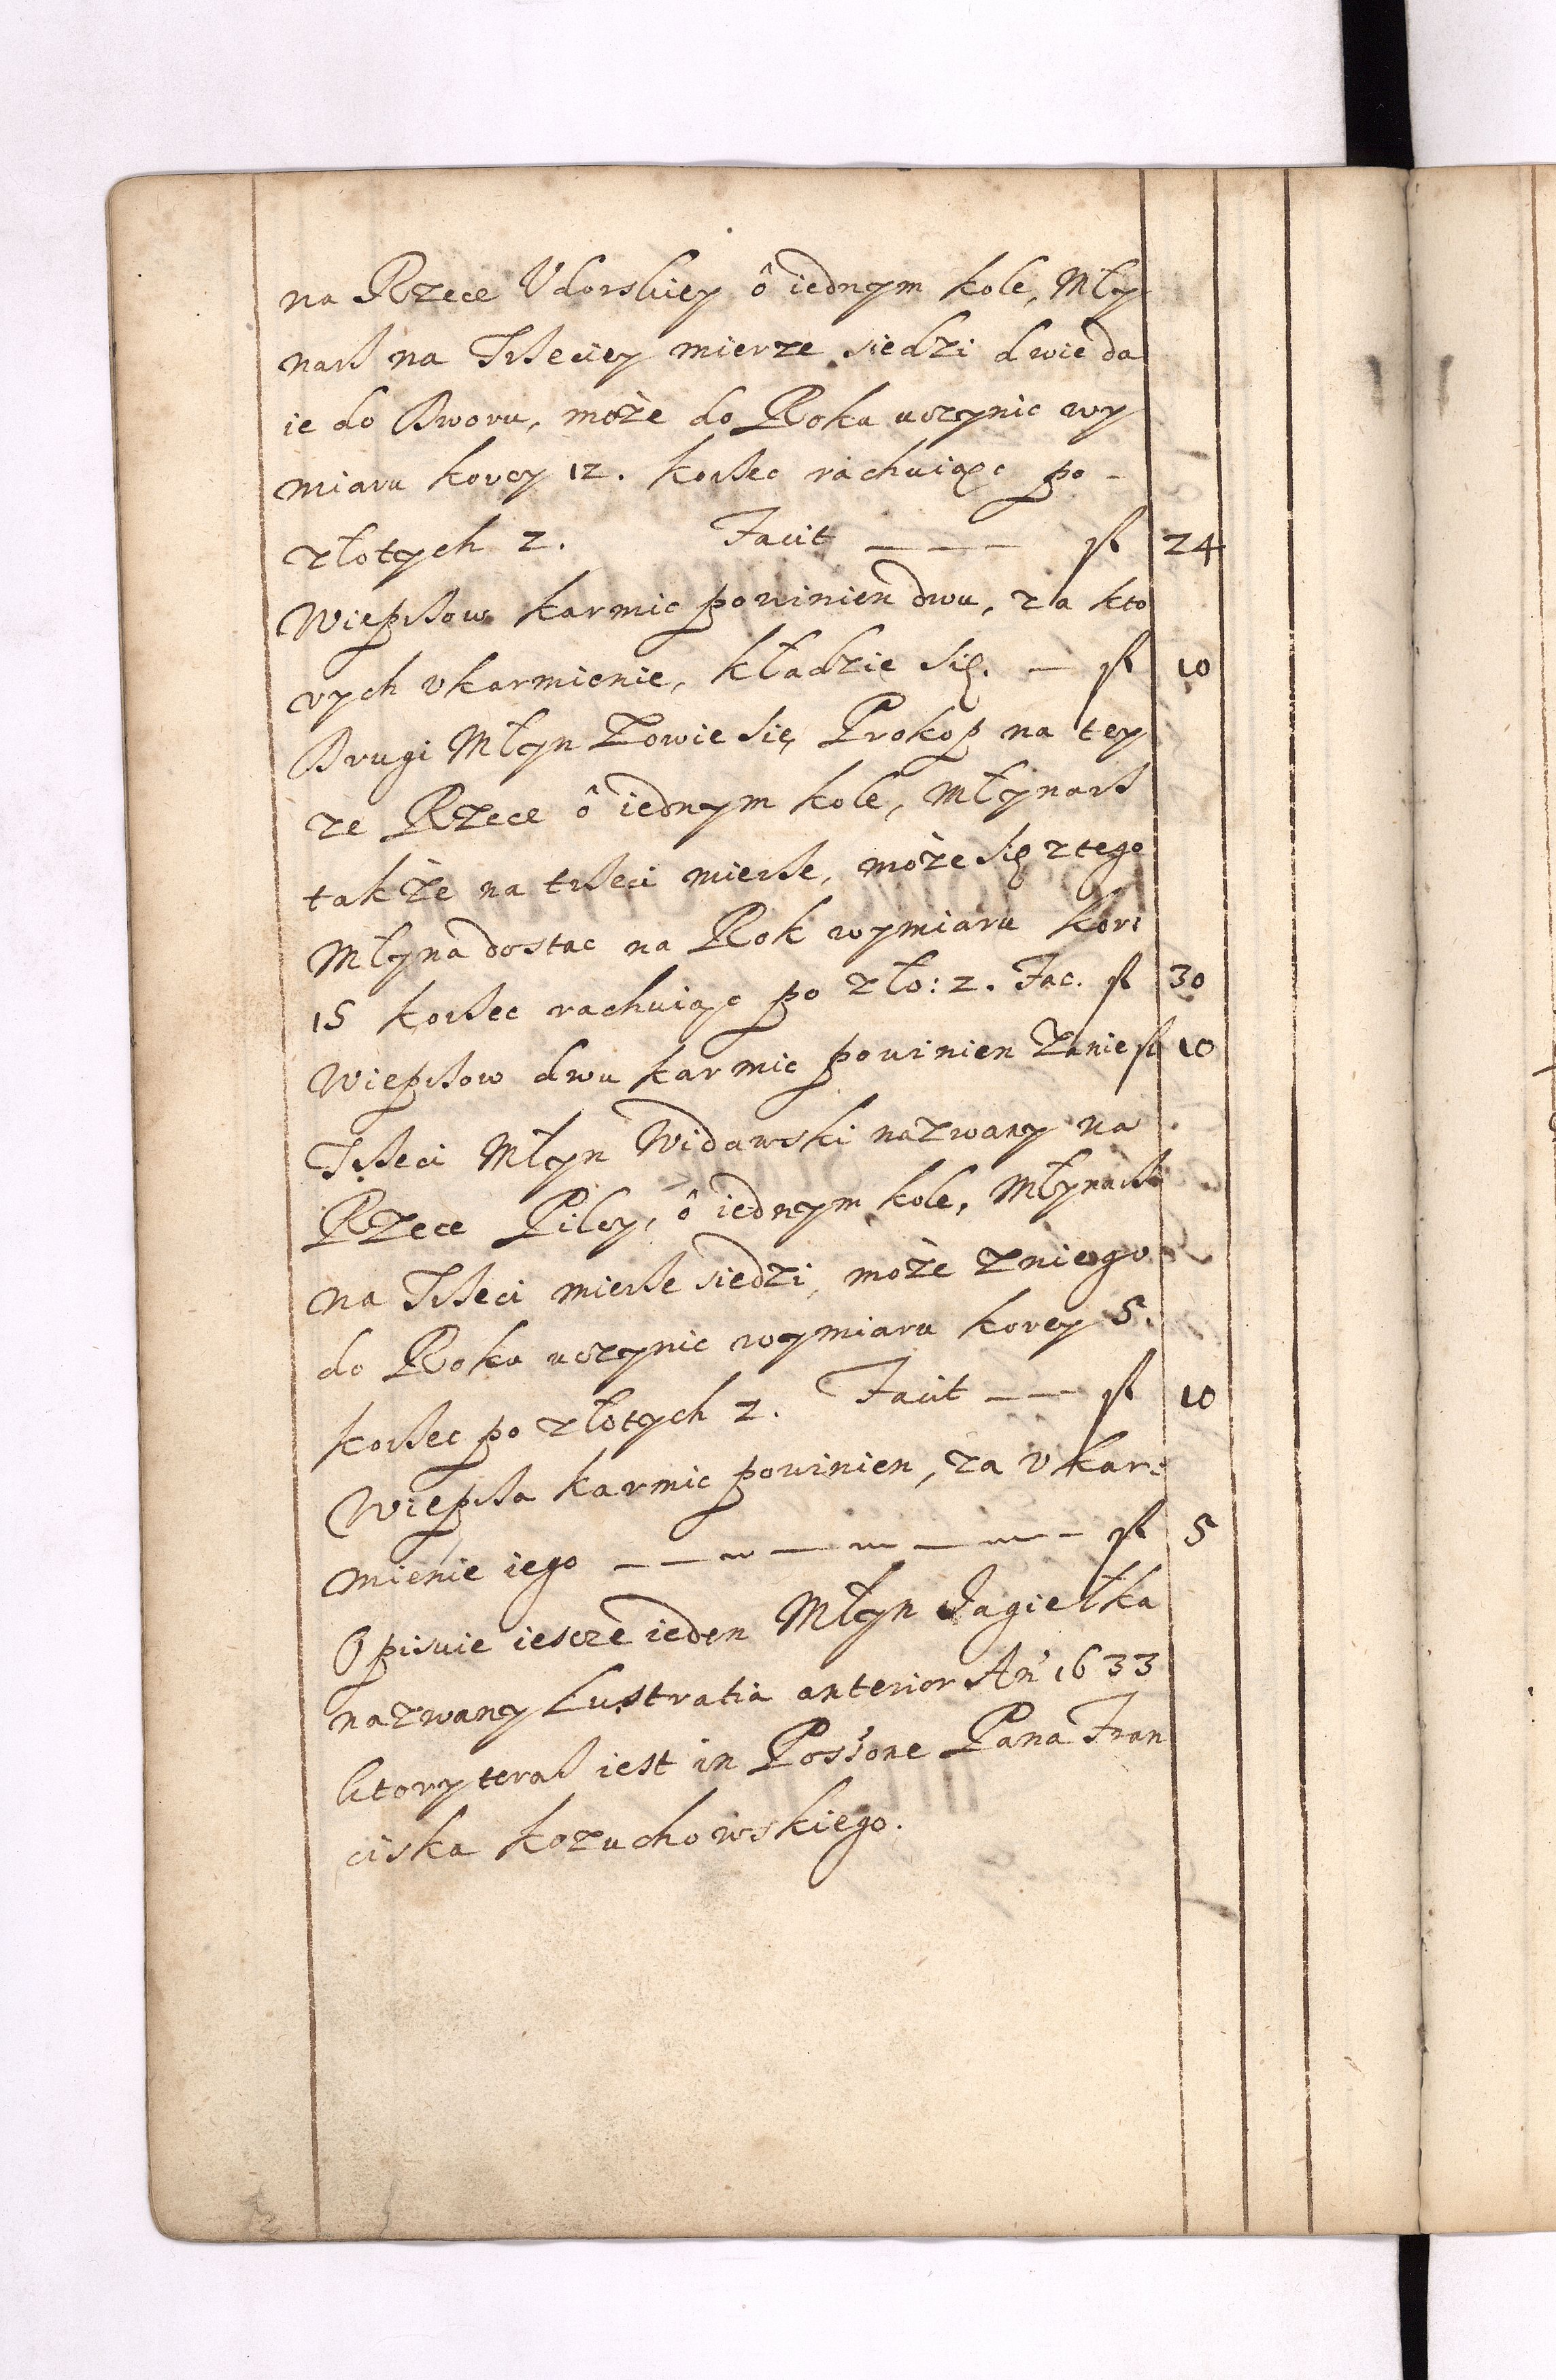 na Rzece Vdorskiey ô iednym kole, Mły
narß na Trßeciey mierze siedzi dwie da
ie do Dworu, może do Roku uczynic wy
miaru korcy 12. korßec rachuiąc po -
złotych 2. Facit - - - fl 24
Wieprßow karmic powinien dwu, za kto
rych vkarmienie, kładzie się. - fl 10
Drugi Młyn Zowie się Prokop na tey
ze Rzece ô iednym kole, Młynarß
także na trßeci mierße, może się z tego
Młyna dostac na Rok wymiaru kor:
15 korßec rachuiąc po zło: 2. Fac. fl 30
Wieprßow dwu karmic powinien Zanie fl 10
Trßeci Młyn Widawski nazwany na
Rzece Pilcy, ô iednym kole, Młynarß
na Trßeci mierße siedzi, może Zniego
do Roku uczynic wymiaru korcy 5.
korßec po złotych 2. Facit - - fl 10
Wieprßa karmic powinien, za vkar:
mienie iego - - - - - - - fl 5
Opisuie iescze ieden Młyn Jagiełka
nazwany Lustratia anterior An̄ 1633
ktory teraß iest in Possone Pana Fran
ciska Kozuchowskiego.